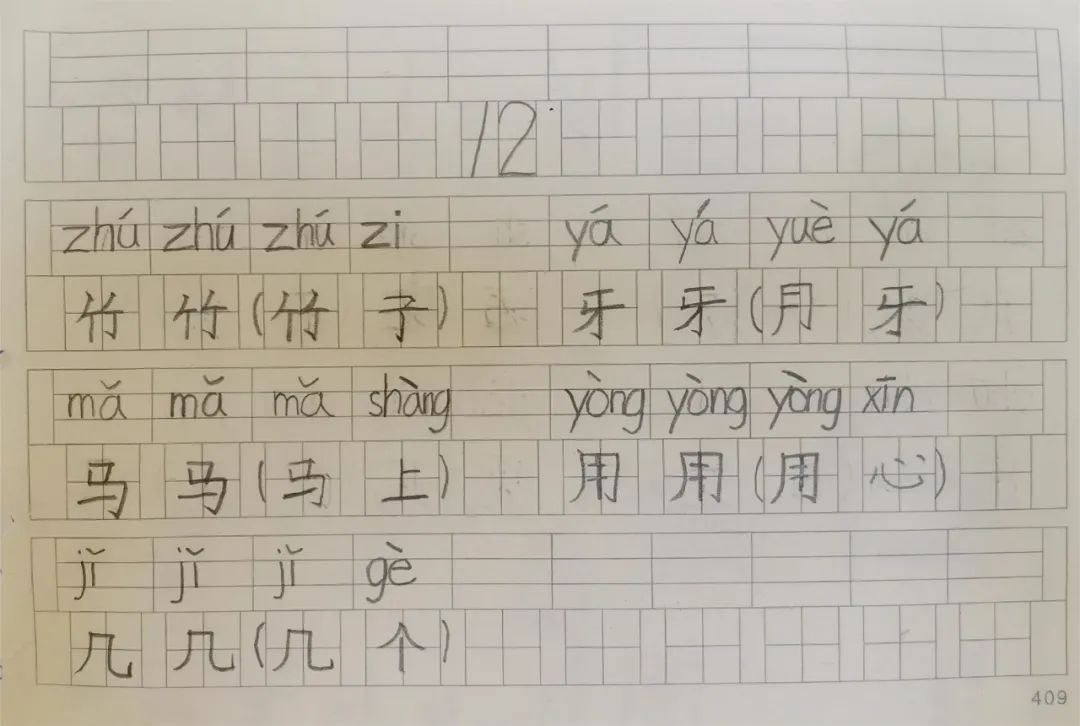 12
zhú zhú zhú zi yá yá yuè yá
竹 竹 (竹 子) 牙 牙 (月 牙)
mǎ mǎ mǎ shàng yòng yòng yòng xīn
马 马 (马 上) 用 用 (用 心)
jǐ jǐ jǐ gè
几 几 (几 个)
409